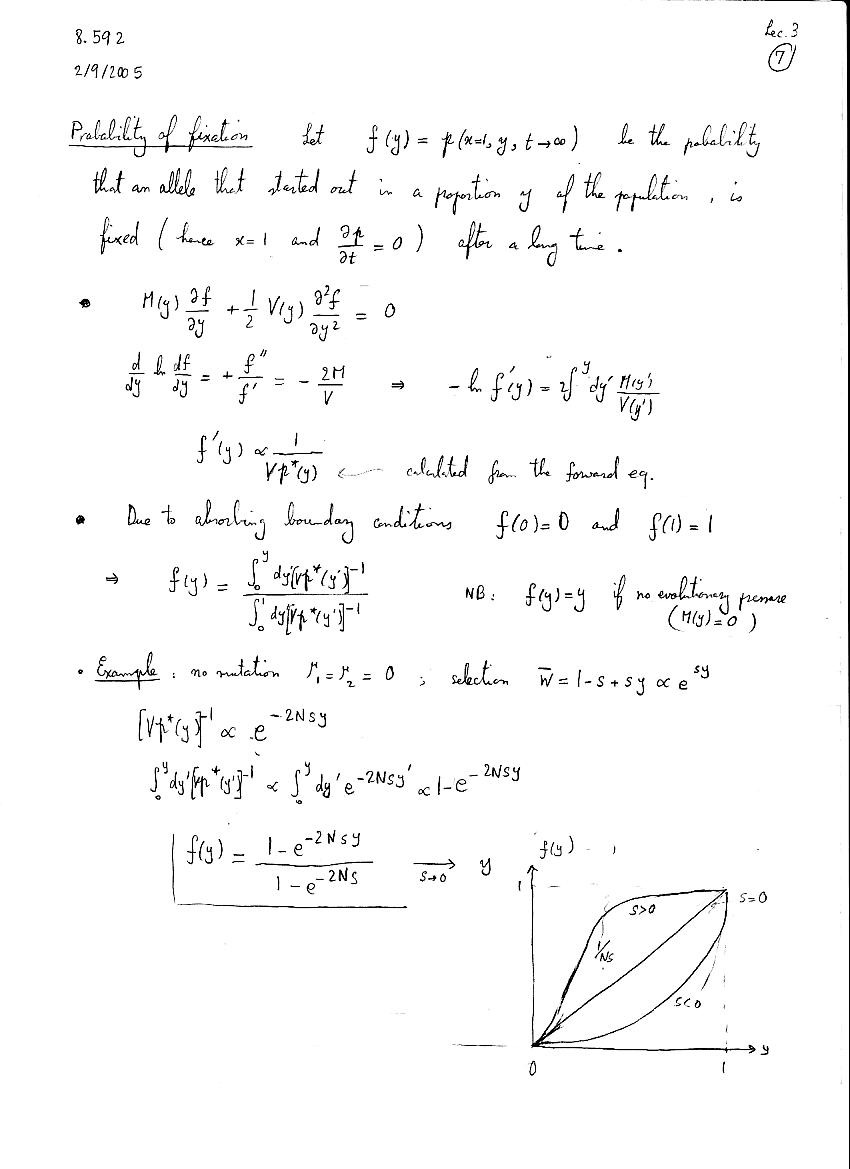 8.592
Lec. 3
2/9/2005
7
Probability of fixation Let f(y) = p(x=1, y, t→∞) be the probability
that an allele that started out in a proportion y of the population, is
fixed (hence x=1 and ∂p/∂t = 0) after a long time.
• M(y) ∂f/∂y + 1/2 V(y) ∂²f/∂y² = 0
d/dy ln df/dy = + f''/f' = - 2M/V ⇒ - ln f'(y) = 2∫^y dy' M(y')/V(y')
f'(y) ∝ 1/Vp*(y) ← calculated from the forward eq.
• Due to absorbing boundary conditions f(0)=0 and f(1)=1
⇒ f(y) = ∫₀^y dy'[Vp*(y')]⁻¹ / ∫₀^1 dy'[Vp*(y')]⁻¹ NB: f(y)=y if no evolutionary pressure
(M(y)=0)
• Example: no mutation μ₁=μ₂=0 ; selection W̄ = 1-s+sy ∝ e^{sy}
[Vp*(y)]⁻¹ ∝ e^{-2Nsy}
∫₀^y dy'[Vp*(y')]⁻¹ ∝ ∫₀^y dy' e^{-2Nsy'} ∝ 1-e^{-2Nsy}
f(y) = (1-e^{-2Nsy})/(1-e^{-2Ns}) →_{s→0} y
f(y)
1
s=0
s>0
1/Ns
s<0
y
0
1